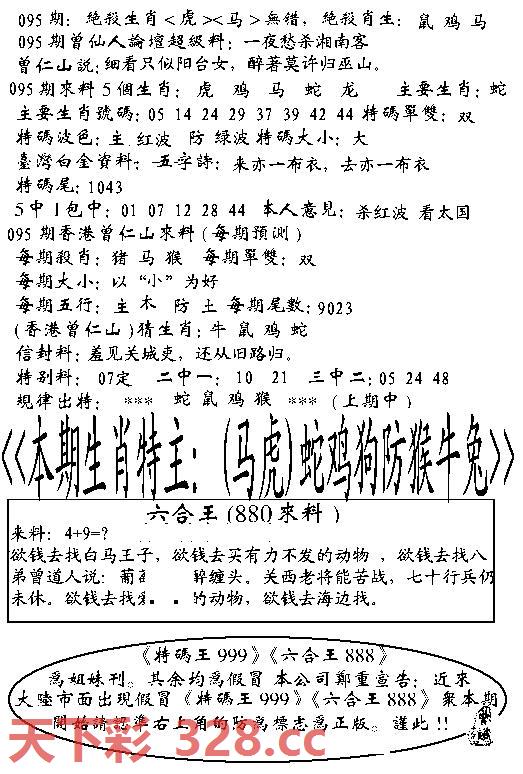 095期: 絶殺生肖<虎><马>無错, 絶殺肖生: 鼠 鸡 马
095期曾仙人論壇超級料: 一夜愁杀湘南客
曾仁山説: 细看只似阳台女, 醉著莫许归巫山。
095期來料5個生肖: 虎 鸡 马 蛇 龙 主要生肖: 蛇
主要生肖號碼: 05 14 24 29 37 39 42 44 特碼單雙: 双
特碼波色: 主 红波 防 绿波 特碼大小: 大
臺灣白金資料: 五字詩: 来亦一布衣, 去亦一布衣
特碼尾: 1043
5中1包中: 01 07 12 28 44 本人意見: 杀红波 看太国
095期香港曾仁山來料(每期預測)
每期殺肖: 猪 马 猴 每期單雙: 双
每期大小: 以“小”为好
每期五行: 主 木 防 土 每期尾數: 9023
(香港曾仁山)猜生肖: 牛 鼠 鸡 蛇
信封料: 羞见关城吏, 还从旧路归。
特别料: 07定 二中一: 10 21 三中二: 05 24 48
規律出特: *** 蛇 鼠 鸡 猴 *** (上期中)
《本期生肖特主: (马虎)蛇鸡狗防猴牛兔》
六合王(880來料)
来料: 4+9=?
欲钱去找白马王子, 欲钱去买有力不发的动物, 欲钱去找八
弟曾道人说: 葡 醉缠头。关西老将能苦战, 七十行兵仍
未休。欲钱去找 的动物, 欲钱去海边找。
《特碼王999》《六合王888》
爲姐妹刊。其余均爲假冒 本公司鄭重宣告: 近來
大陸市面出現假冒《特碼王999》《六合王888》衆本期
開始請認準右上角的防爲標志爲正版。謹此!!
天下彩 328.cc